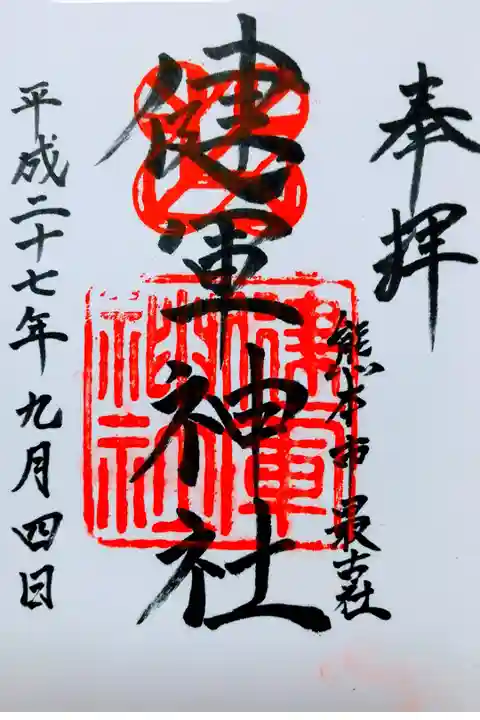 奉拝
熊本市 最古社
健軍神社
健軍
神社
平成二十七年九月四日